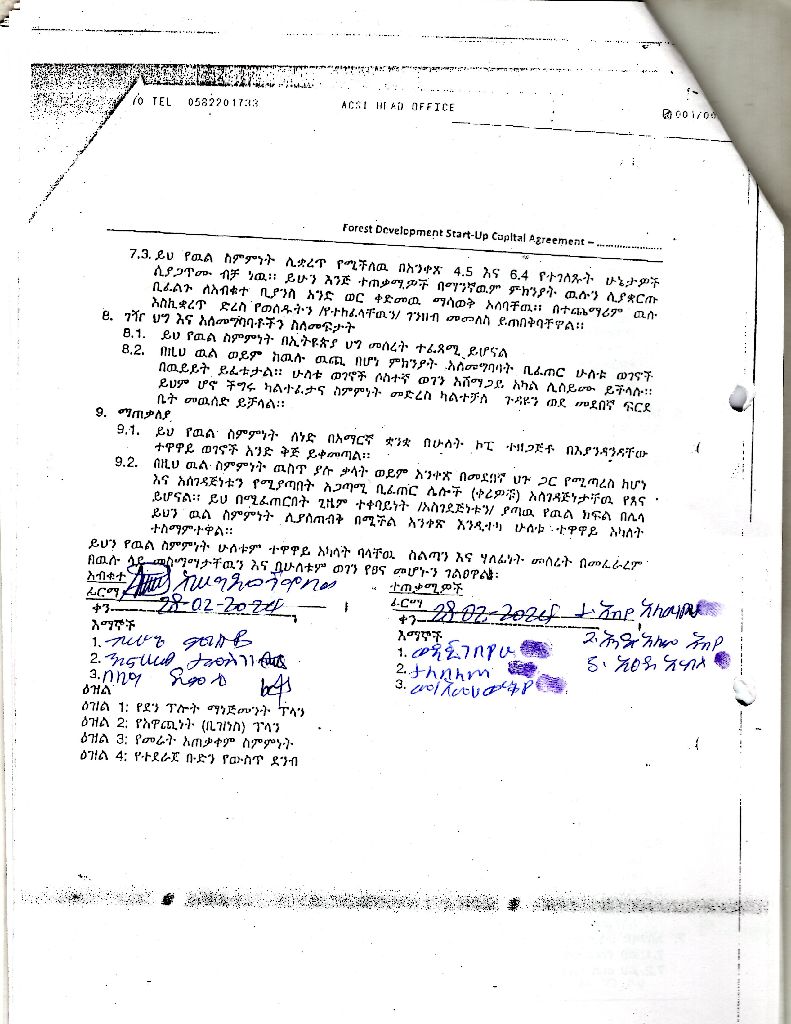 TEL 0582201733 ACSI HEAD OFFICE 001/00
Forest Development Start-Up Capital Agreement – ......................
7.3. ይህ የዉል ስምምነት ሊቋረጥ የሚችለዉ በአንቀጽ 4.5 እና 6.4 የተገለጹት ሁኔታዎች
ሲያጋጥሙ ብቻ ነዉ፡፡ ይሁን እንጅ ተጠቃሚዎች በማንኛዉም ምክንያት ዉሱን ሲያቋርጡ
ቢፈልጉ ለአብቁተ ቢያንስ አንድ ወር ቀድመዉ ማሳወቅ አለባቸዉ፡፡ በተጨማሪም ዉሉ
እስኪቋረጥ ድረስ የወሰዱትን /የተከፈላቸዉን/ ገንዘብ መመለስ ይጠበቅባቸዋል፡፡
8. ገዥ ህግ እና አለመግባባቶችን ስለመፍታት
8.1. ይህ የዉል ስምምነት በኢትዮጵያ ህግ መሰረት ተፈጻሚ ይሆናል
8.2. በዚህ ዉል ወይም ከዉሉ ዉጪ በሆነ ምክንያት አለመግባባት ቢፈጠር ሁለቱ ወገኖች
በዉይይት ይፈቱታል፡፡ ሁለቱ ወገኖች ሶስተኛ ወገን አሸማጋይ አካል ሊሰይሙ ይችላሉ፡፡
ይህም ሆኖ ችግሩ ካልተፈታና ስምምነት መድረስ ካልተቻለ ጉዳዩን ወደ መደበኛ ፍርድ
ቤት መዉሰድ ይቻላል፡፡
9. ማጠቃለያ
9.1. ይህ የዉል ስምምነት ሰነድ በአማርኛ ቋንቋ በሁለት ኮፒ ተዘጋጅቶ በእያንዳንዳቸው
ተዋዋይ ወገኖች አንድ ቅጅ ይቀመጣል፡፡
9.2. በዚህ ዉል ስምምነት ዉስጥ ያሉ ቃላት ወይም አንቀጽ በመደበኛ ህጉ ጋር የሚጣረስ ከሆነ
እና አስገዳጅነቱን የሚያጣበት አጋጣሚ ቢፈጠር ሌሎች (ቀሪዎቹ) አስገዳጅነታቸዉ የጸና
ይሆናል፡፡ ይህ በሚፈጠርበት ጊዜም ተቀባይነት /አስገደጅነቱን/ ያጣዉ የዉል ክፍል በሌላ
ይህን ዉል ስምምነት ሊያስጠብቅ በሚችል አንቀጽ እንዲተካ ሁለቱ ተዋዋይ አካላት
ተስማምተዋል፡፡
ይህን የዉል ስምምነት ሁለቱም ተዋዋይ አካላት ባላቸዉ ስልጣን እና ሃላፊነት መሰረት በመፈራረም
በዉሉ ላይ መስማማታቸዉን እና በሁለቱም ወገን የፀና መሆኑን ገልፀዋል፡
አብቁተ
ፊርማ
ቀን 28-02-2024
እማኞች
1.
2.
3.
ተጠቃሚዎች
ፊርማ
ቀን 28-02-2024
እማኞች
1.
2.
3.
ዕዝል
ዕዝል 1: የደን ፕሎት ማኔጅመንት ፕላን
ዕዝል 2: የአዋጪነት (ቢዝነስ) ፕላን
ዕዝል 3: የመሬት አጠቃቀም ስምምነት
ዕዝል 4: የተደራጀ ቡድን የውስጥ ደንብ